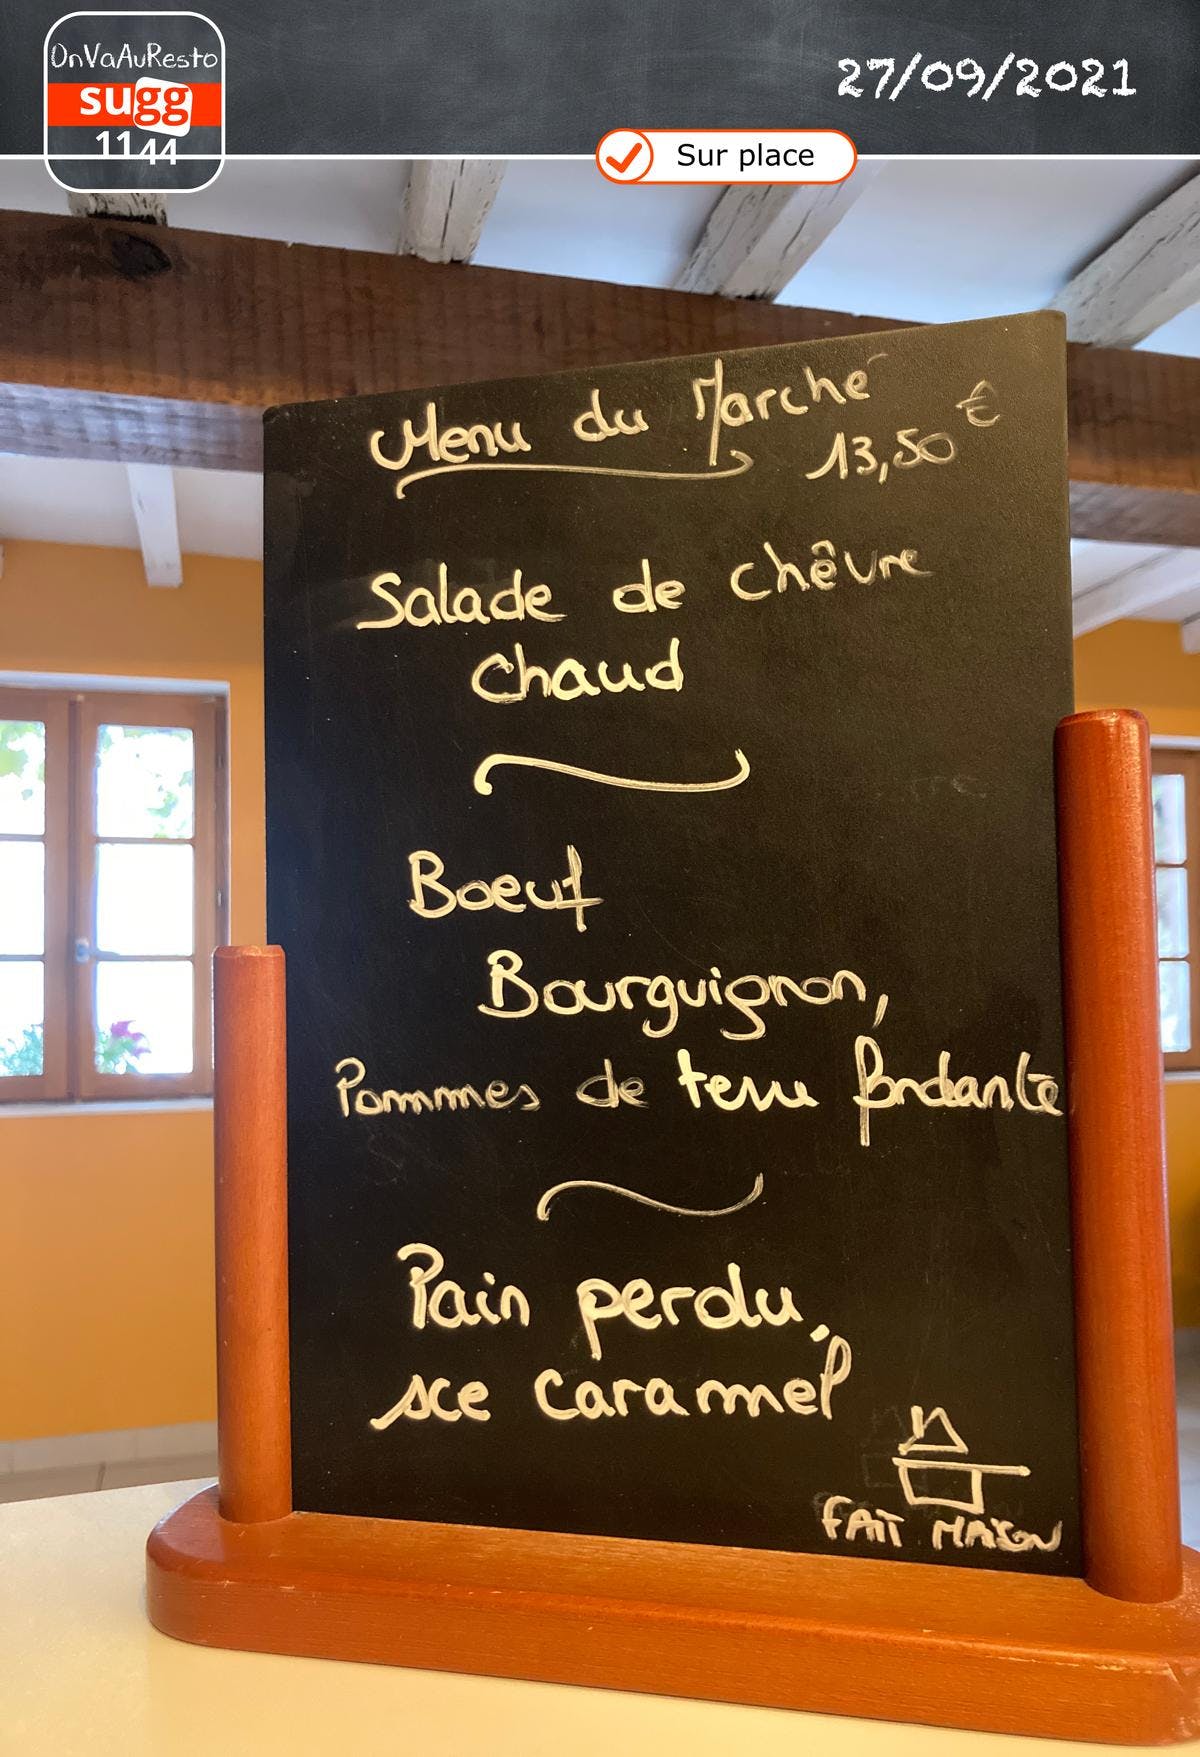 OnVaAuResto
sugg
1144
27/09/2021
Sur place
Menu du Marché
13,50 €
Salade de chêvre
chaud
Boeuf
Bourguignon,
Pommes de terre fondante
Pain perdu,
sce caramel
FAIT MAISON